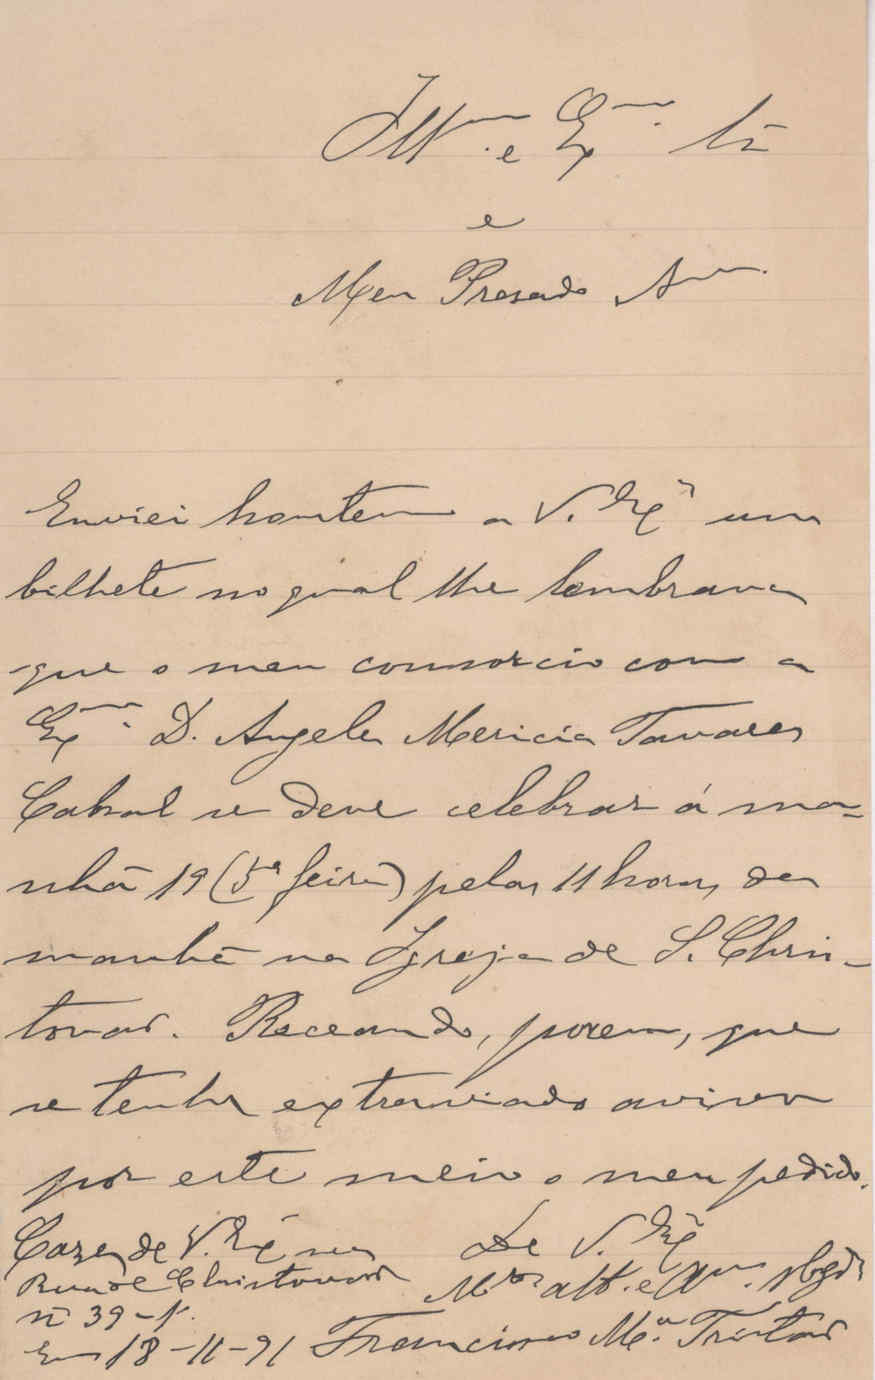 Illmo. e Exmo. Sr.
e
Meu Presado Amo.
Enviei hontem a V. Exa um
bilhete no qual lhe lembrava
que o meu consorcio com a
Exma. D. Angela Mericia Tavares
Cabral se deve celebrar á ma-
nhã 19 (5ª feira) pelas 11 horas da
manhã na Igreja de S. Chris-
tovaõ. Receando, porem, que
se tenha extraviado aviso
por este meio o meu pedido.
Caza de V. Exa na
Rua de Christovaõ
nº 39-1º.
Em 18-11-91
De V. Exa
Mto att. e Amo. obgdo
Francisco Ma. Tristaõ